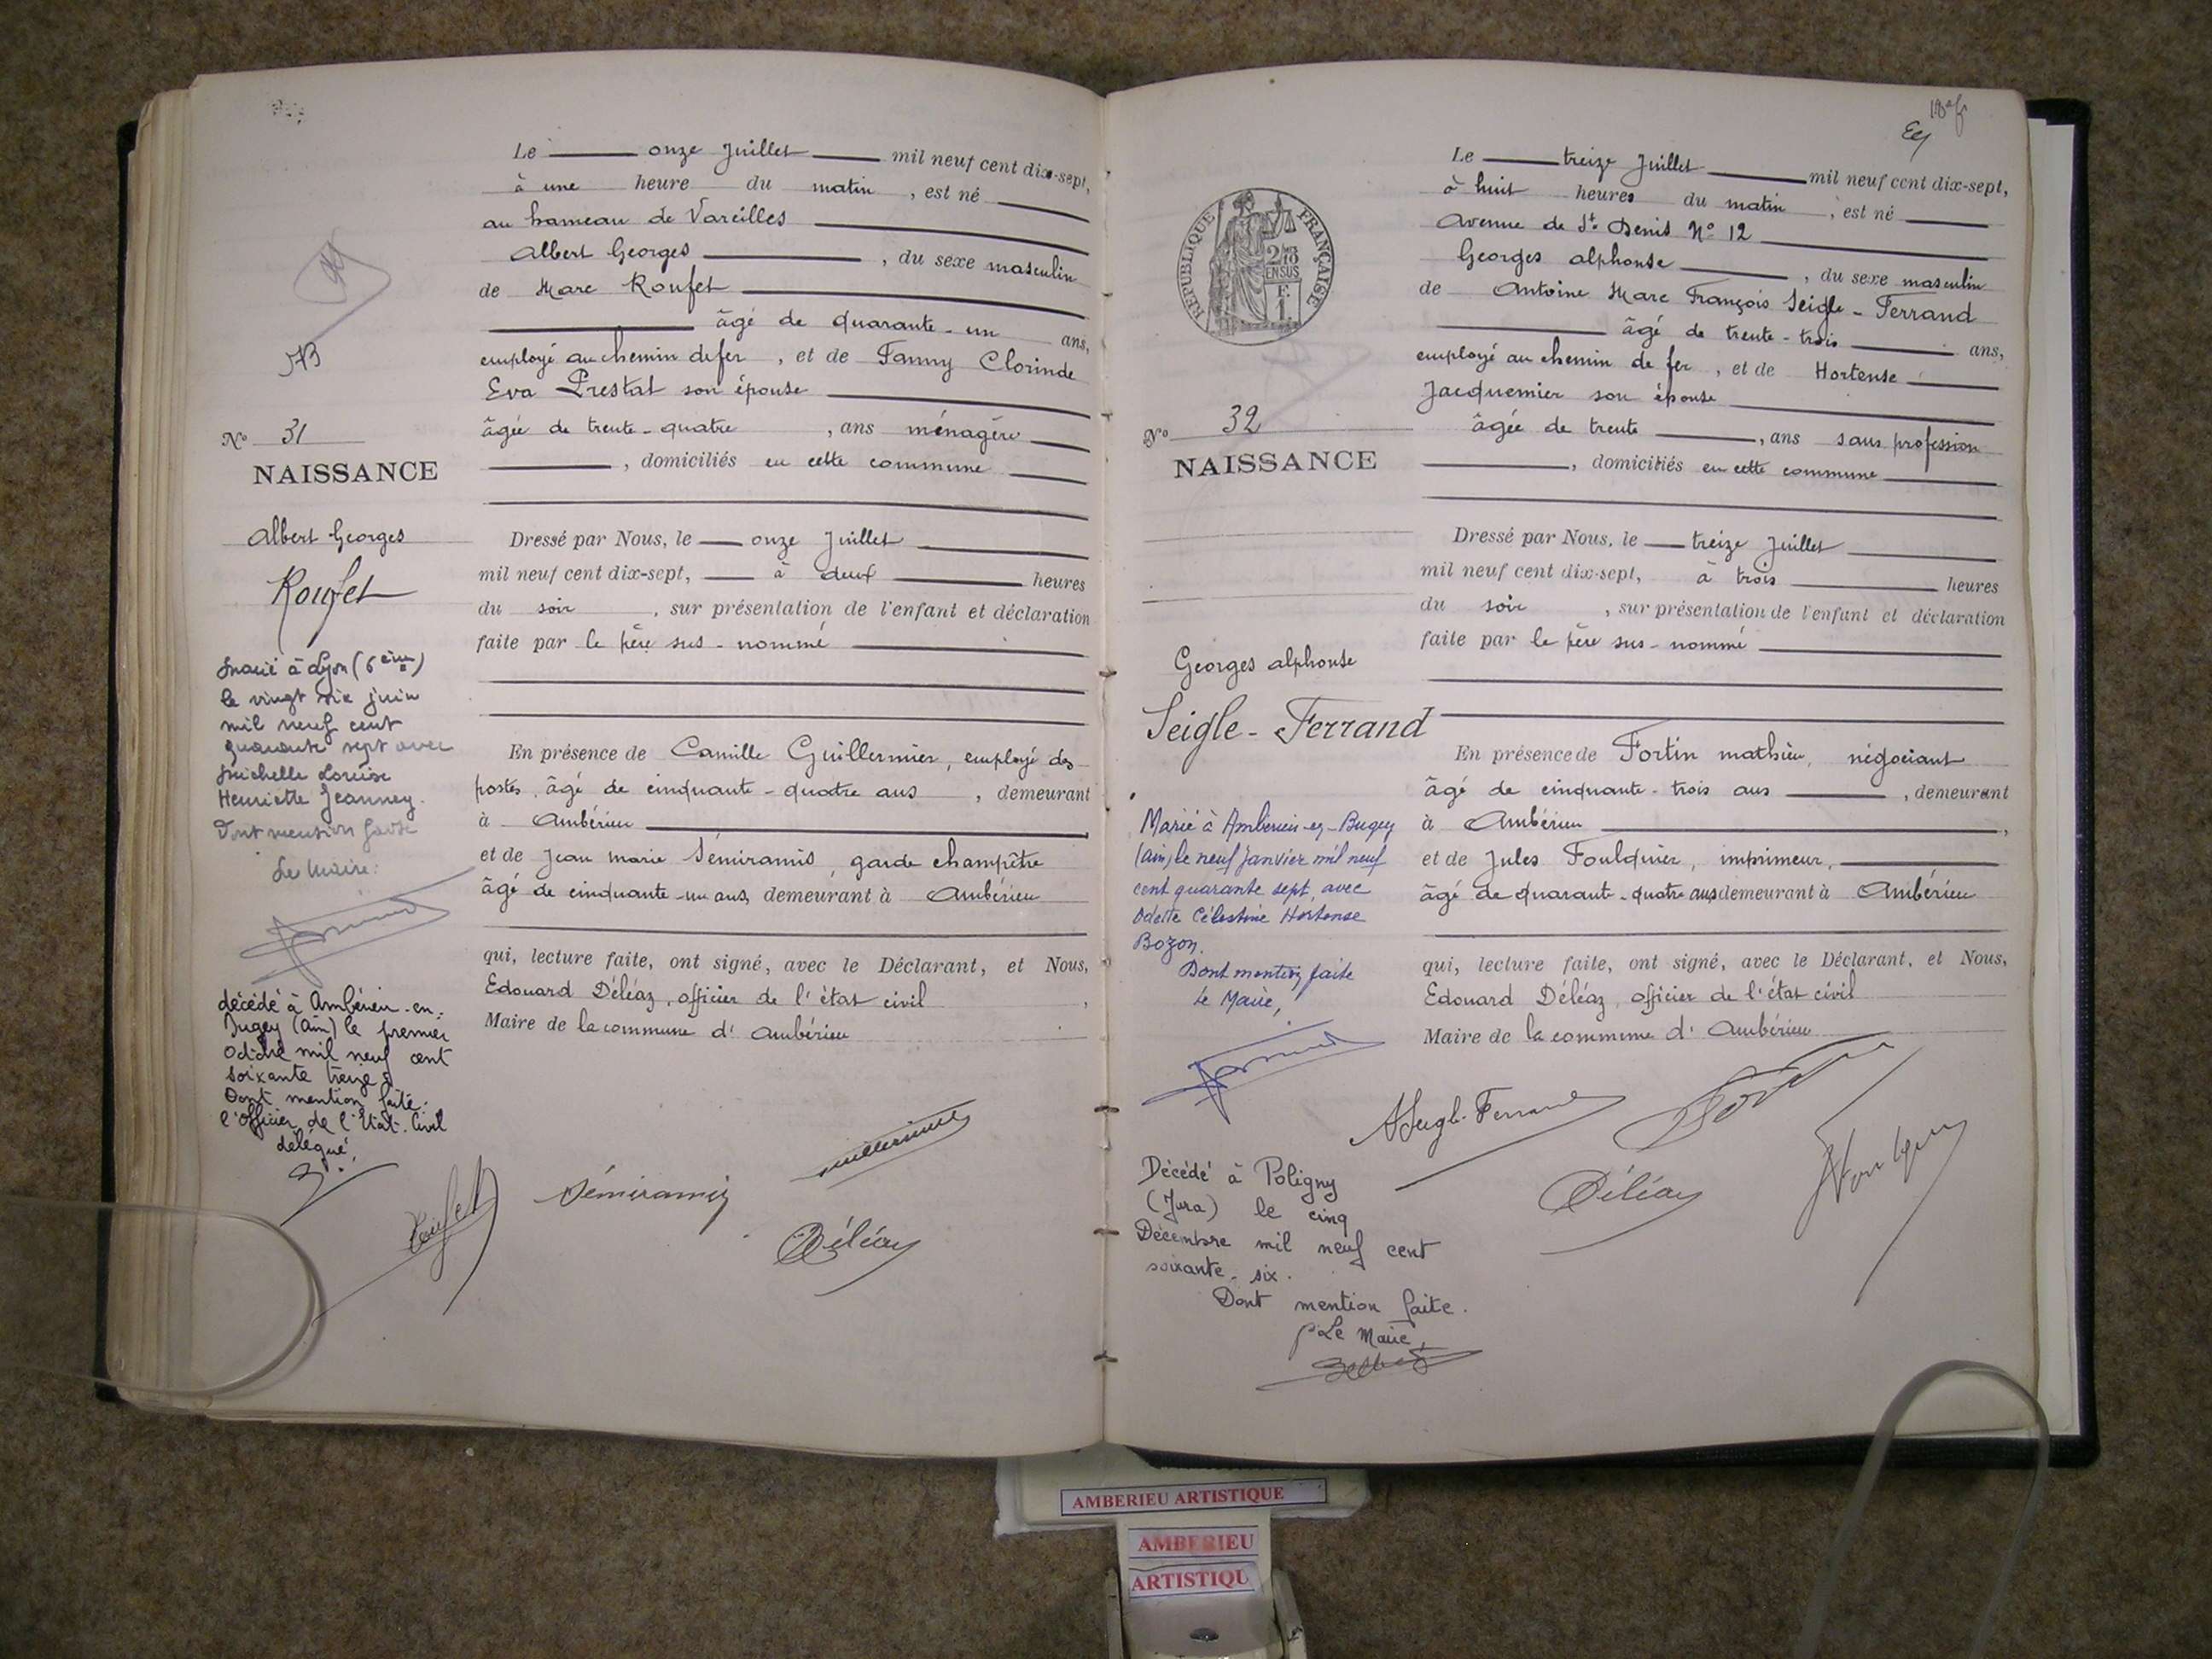 Le onze Juillet mil neuf cent dix-sept,
à une heure du matin, est né
au hameau de Vareilles
Albert Georges, du sexe masculin
de Marc Roufet
âgé de quarante-un ans,
employé au chemin de fer, et de Fanny Clorinde
Eva Prestat son épouse
âgée de trente-quatre, ans ménagère
, domiciliés en cette commune
Dressé par Nous, le onze Juillet
mil neuf cent dix-sept, à deux heures
du soir, sur présentation de l'enfant et déclaration
faite par le père sus-nommé
En présence de Camille Guillermier, employé des
postes, âgé de cinquante-quatre ans, demeurant
à Ambérieu
et de Jean marie Sémiramis, garde champêtre
âgé de cinquante-un ans, demeurant à Ambérieu
qui, lecture faite, ont signé, avec le Déclarant, et Nous,
Edouard Déléaz, officier de l'état civil,
Maire de la commune d'Ambérieu
N° 31
NAISSANCE
Albert Georges
Roufet
Marié à Lyon (6ème)
le vingt six juin
mil neuf cent
quarante sept avec
Michelle Louise
Henriette Jeanney.
Dont mention faite
Le Maire:
décédé à Ambérieu-en-
Bugey (Ain) le premier
octobre mil neuf cent
soixante treize
Dont mention faite.
l'Officier de l'Etat-Civil
délégué,
Roufet
Sémiramis
Guillermier
Déléaz
Le treize Juillet mil neuf cent dix-sept,
à huit heures du matin, est né
Avenue de St Denis N° 12
Georges alphonse, du sexe masculin
de Antoine Marc François Seigle-Ferrand
âgé de trente-trois ans,
employé au chemin de fer, et de Hortense
Jacquemier son épouse
âgée de trente, ans sans profession
, domiciliés en cette commune
Dressé par Nous, le treize Juillet
mil neuf cent dix-sept, à trois heures
du soir, sur présentation de l'enfant et déclaration
faite par le père sus-nommé
En présence de Fortin mathieu, négociant
âgé de cinquante-trois ans, demeurant
à Ambérieu,
et de Jules Foulquier, imprimeur,
âgé de quarante-quatre ans demeurant à Ambérieu
qui, lecture faite, ont signé, avec le Déclarant, et Nous,
Edouard Déléaz, officier de l'état civil
Maire de la commune d'Ambérieu
RÉPUBLIQUE FRANÇAISE
N° 32
NAISSANCE
Georges alphonse
Seigle-Ferrand
Marié à Ambérieu-en-Bugey
(Ain) le neuf Janvier mil neuf
cent quarante sept, avec
Odette Célestine Hortense
Bozon.
Dont mention faite
Le Maire,
Décédé à Poligny
(Jura) le cinq
Décembre mil neuf cent
soixante-six.
Dont mention faite.
P Le Maire,
ASeigle-Ferrand
Déléaz
AMBERIEU ARTISTIQUE
AMBERIEU
ARTISTIQU